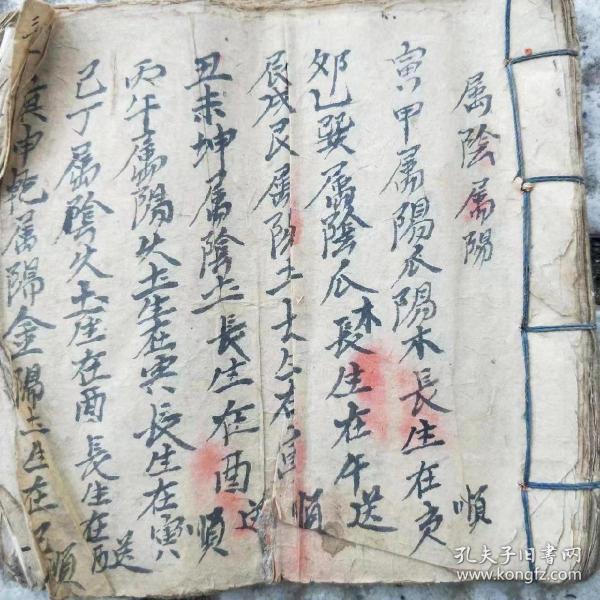 屬陰屬陽
寅甲屬陽 陽木長生在 順
卯乙巽屬陰 木長生在午送
辰戌艮屬陽土 生在寅 順
丑未坤屬陰土長生在酉送
丙午屬陽火土生在寅長生在寅順
己丁屬陰火土生在酉長生在酉送
庚申乾屬陽金陽土生在 順
孔夫子旧书网
www.kongfz.com